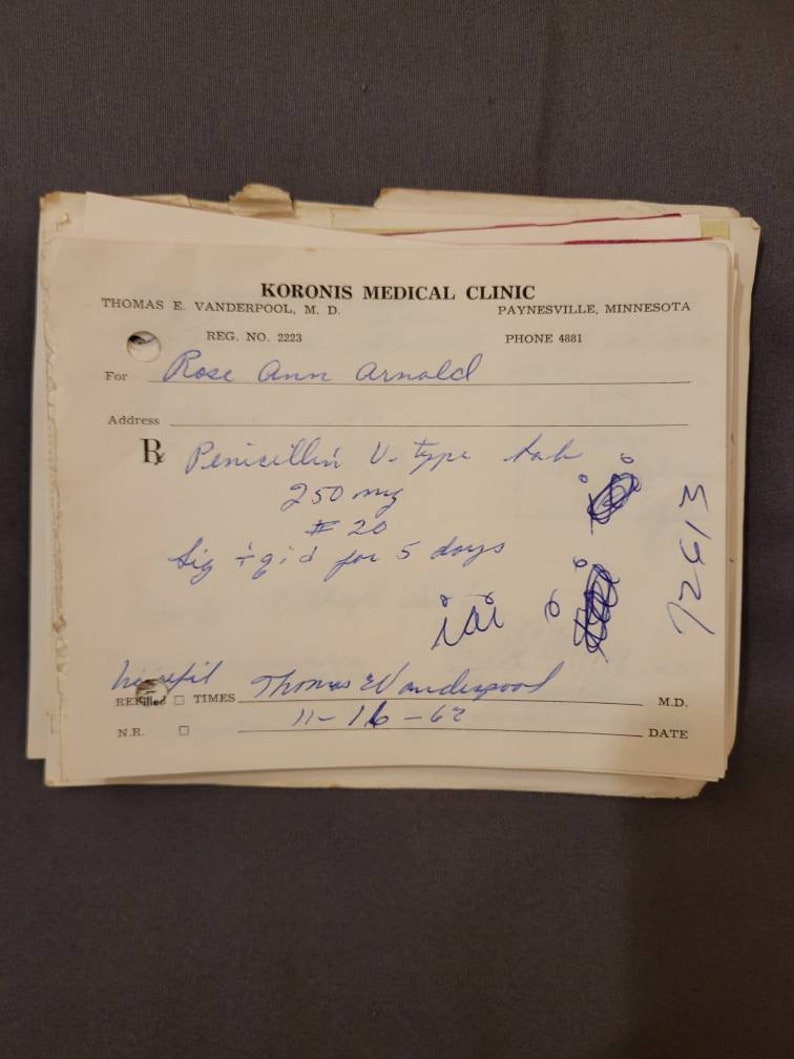 KORONIS MEDICAL CLINIC
THOMAS E. VANDERPOOL, M. D. PAYNESVILLE, MINNESOTA
REG. NO. 2223 PHONE 4881
For Rose Ann Arnold
Address
Rx Penicillin V-type tab
250 mg
# 20
Sig + qid for 5 days
72613
Thomas E Vanderpool
REFilled □ TIMES M.D.
11-16-62
N.R. □ DATE